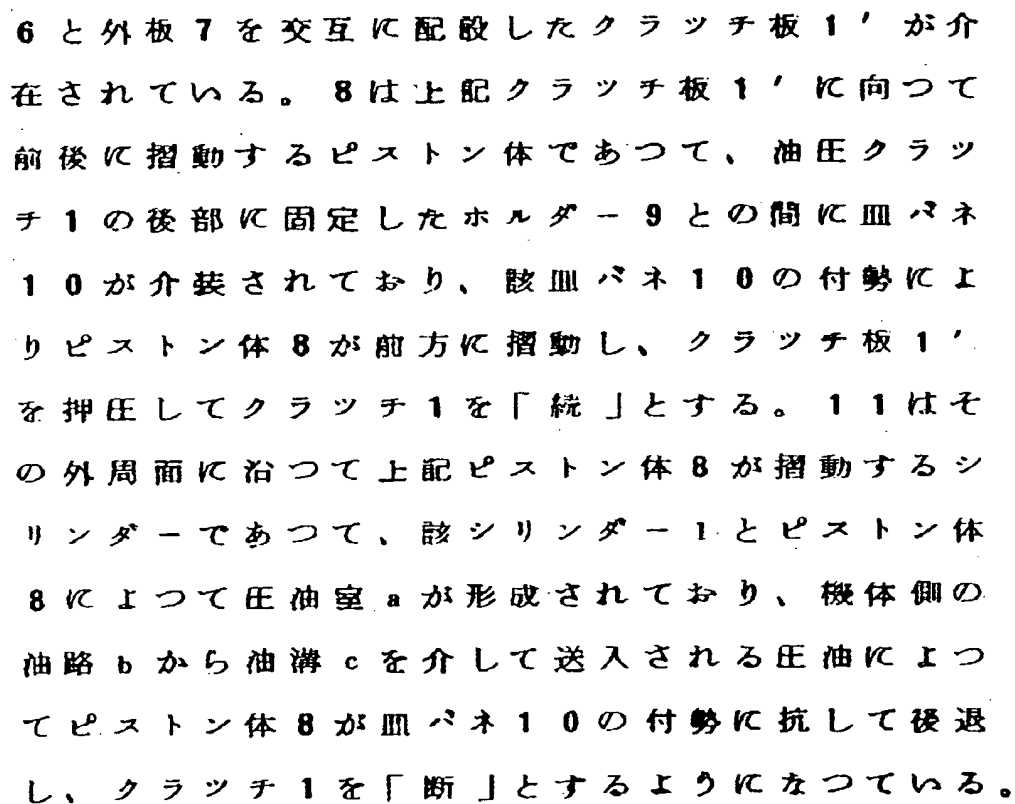 6と外板7を交互に配設したクラツチ板1′が介
在されている。8は上記クラツチ板1′に向つて
前後に摺動するピストン体であつて、油圧クラツ
チ1の後部に固定したホルダー9との間に皿バネ
10が介装されており、該皿バネ10の付勢によ
りピストン体8が前方に摺動し、クラツチ板1′
を押圧してクラツチ1を「続」とする。11はそ
の外周面に沿つて上記ピストン体8が摺動するシ
リンダーであつて、該シリンダー1とピストン体
8によつて圧油室aが形成されており、機体側の
油路bから油溝cを介して送入される圧油によつ
てピストン体8が皿バネ10の付勢に抗して後退
し、クラツチ1を「断」とするようになつている。